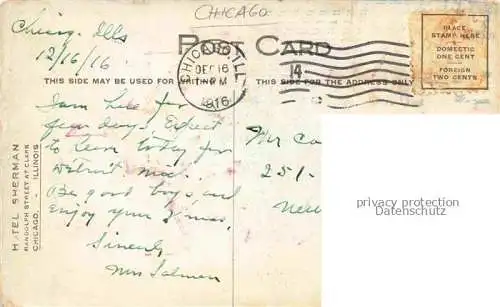 CHICAGO
Chicag. Ills
12/16/16
POST CARD
CHICAGO, ILL
DEC 16
PM
1916
14
PLACE
STAMP HERE
DOMESTIC
ONE CENT
FOREIGN
TWO CENTS
THIS SIDE MAY BE USED FOR WRITING
THIS SIDE FOR THE ADDRESS ONLY
I am here for
few days. Expect
to leave today for
Detroit Mich.
Be good boys and
enjoy your Xmas.
Sincerely
Mrs Salmen
Mr Ca
251-
New
HOTEL SHERMAN
RANDOLPH STREET AT CLARK
CHICAGO, - ILLINOIS
privacy protection
Datenschutz